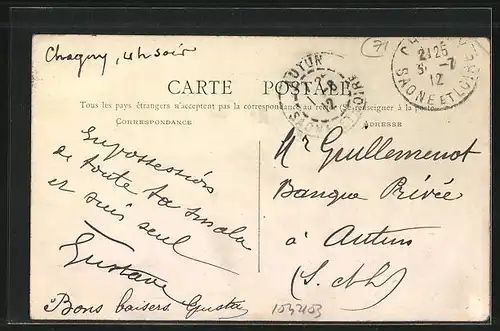 Chagny, 4h soir
71
CARTE POSTALE
Tous les pays étrangers n'acceptent pas la correspondance au recto (Se renseigner à la poste)
CORRESPONDANCE
ADRESSE
21 25
31 -7
12
SAONE ET LOIRE
AUTUN
12
En possession
de toute ta smala
et suis seul
Gustave
Bons baisers
Mr Guillemenot
Banque Privée
à Autun
(S. &L)
1032103